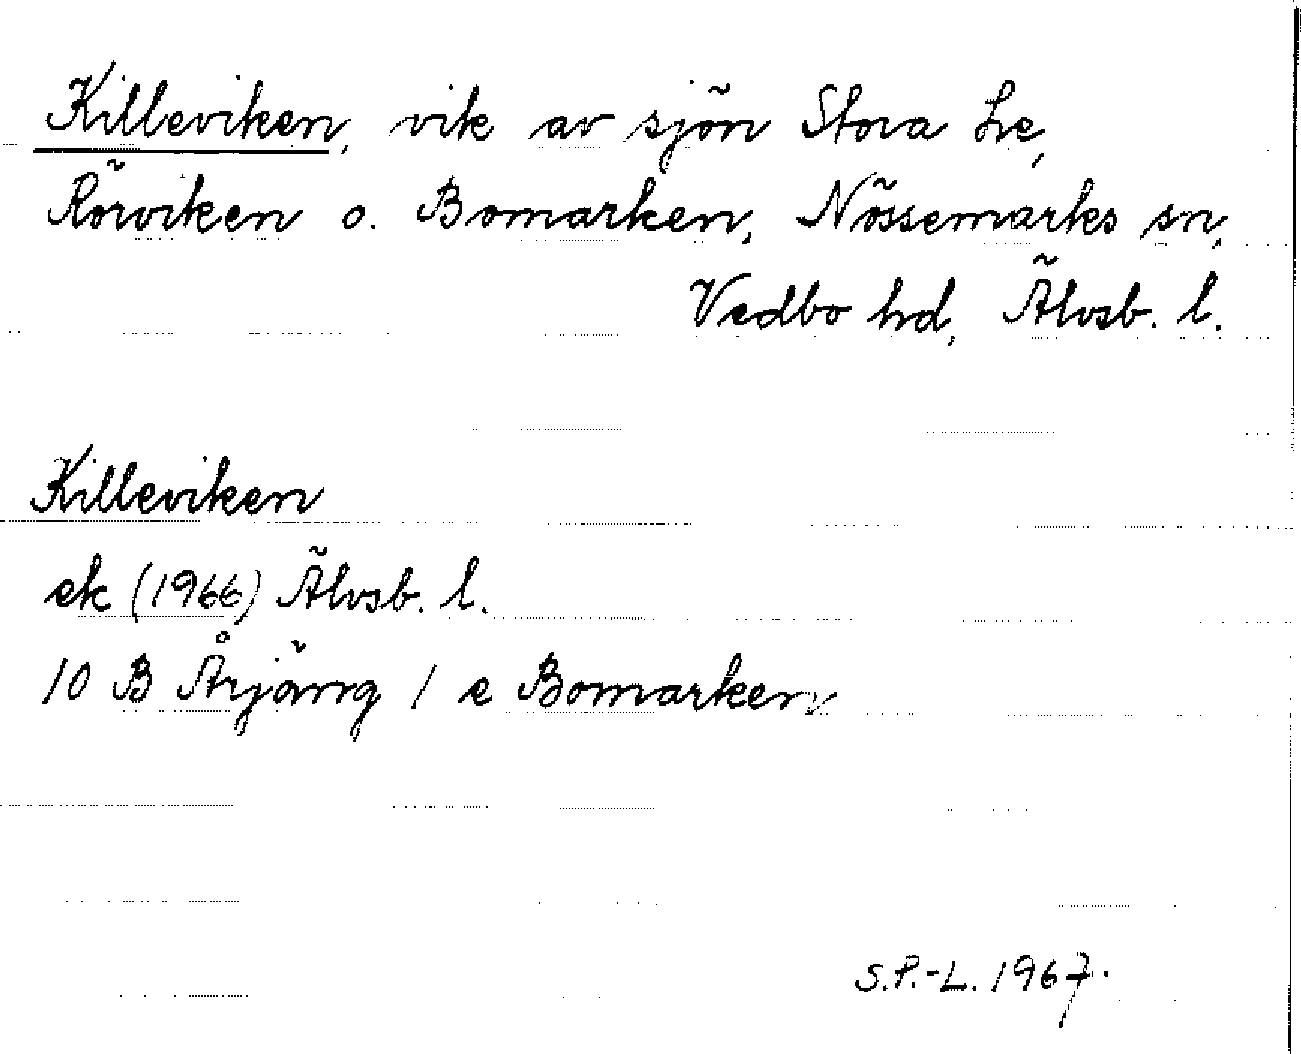 Killeviken, vik av sjön Stora Le,
Rörviken o. Bomarken, Nössemarks sn,
Vedbo hd, Älvsb. l.
Killeviken
ek (1966) Älvsb. l.
10 B Årjäng / e Bomarken
S.P.-L. 1967.